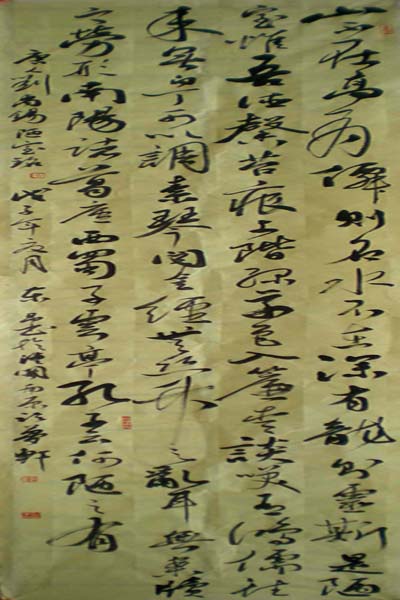 山不在高有僊則名水不在深有龍則靈斯是陋
室惟吾德馨苔痕上階綠草色入簾青談笑有鴻儒往
来無白丁可以調素琴閱金經無絲竹之亂耳無案牘
之勞形南陽諸葛廬西蜀子雲亭孔子云何陋之有
唐劉禹錫陋室銘 戊子年夏月